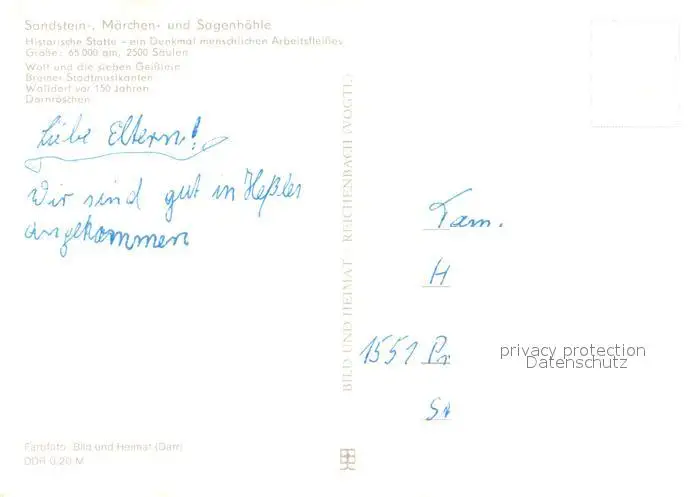 Sandstein-, Märchen- und Sagenhöhle
Historische Stätte – ein Denkmal menschlichen Arbeitsfleißes
Größe: 65 000 qm, 2500 Säulen
Wolf und die sieben Geißlein
Bremer Stadtmusikanten
Walldorf vor 150 Jahren
Dornröschen
Liebe Eltern!
Wir sind gut in Heßles
angekommen
BILD UND HEIMAT REICHENBACH (VOGTL)
Fam.
H
1551 Pr
St
privacy protection
Datenschutz
Farbfoto: Bild und Heimat (Darr)
DDR 0,20 M